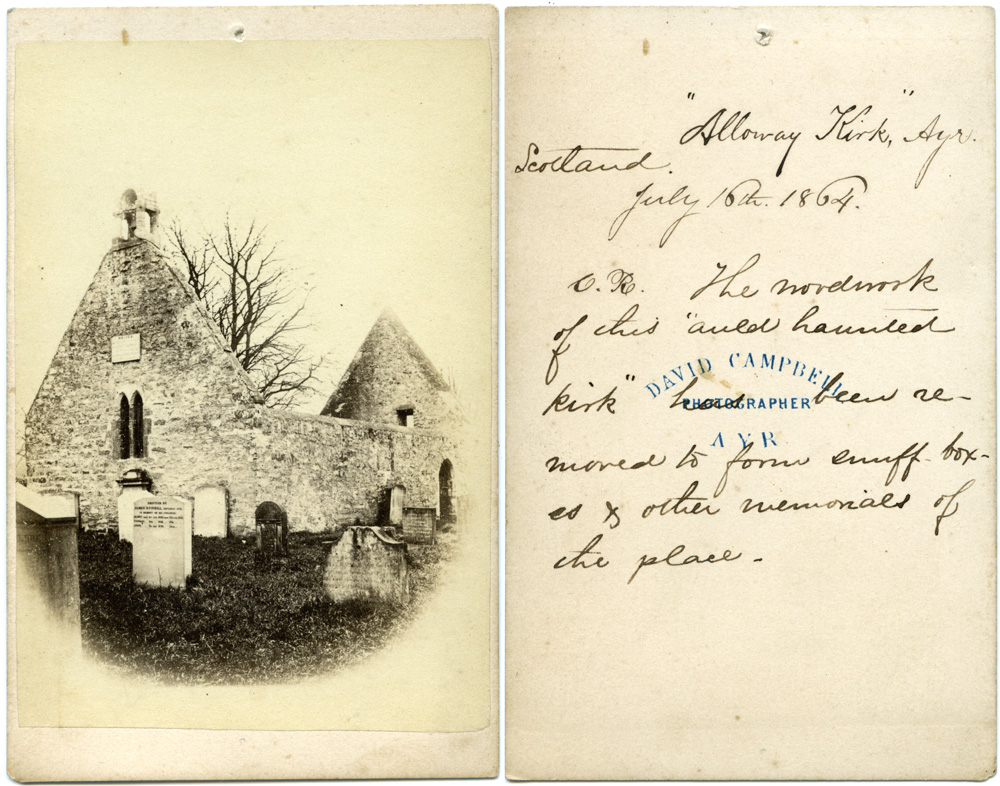 "Alloway Kirk," Ayr.
Scotland.
July 16th. 1864.
The woodwork
of this "auld haunted
DAVID CAMPBELL
kirk" has been re-
PHOTOGRAPHER
AYR
moved to form snuff-box-
es & other memorials of
the place-